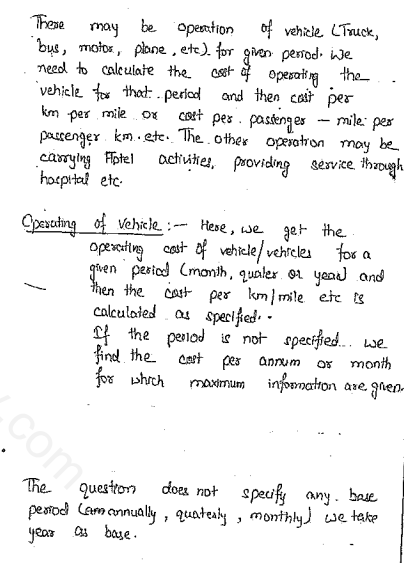 There may be operation of vehicle (Truck,
bus, motor, plane, etc). for given period. We
need to calculate the cost of operating the
vehicle for that period and then cost per
km per mile or cost per. passenger – mile per
passenger km. etc. The other operation may be
carrying Hotel activities, providing service through
hospital etc.
Operating of vehicle :– Here, we get the
operating cost of vehicle/vehicles for a
given period (month, quater or year) and
then the cost per km/mile etc is
calculated as specified.
If the period is not specified... we
find the cost per annum or month
for which maximum information are given.
.com
The question does not specify any. base
period (am annually, quaterly, monthly) we take
year as base.